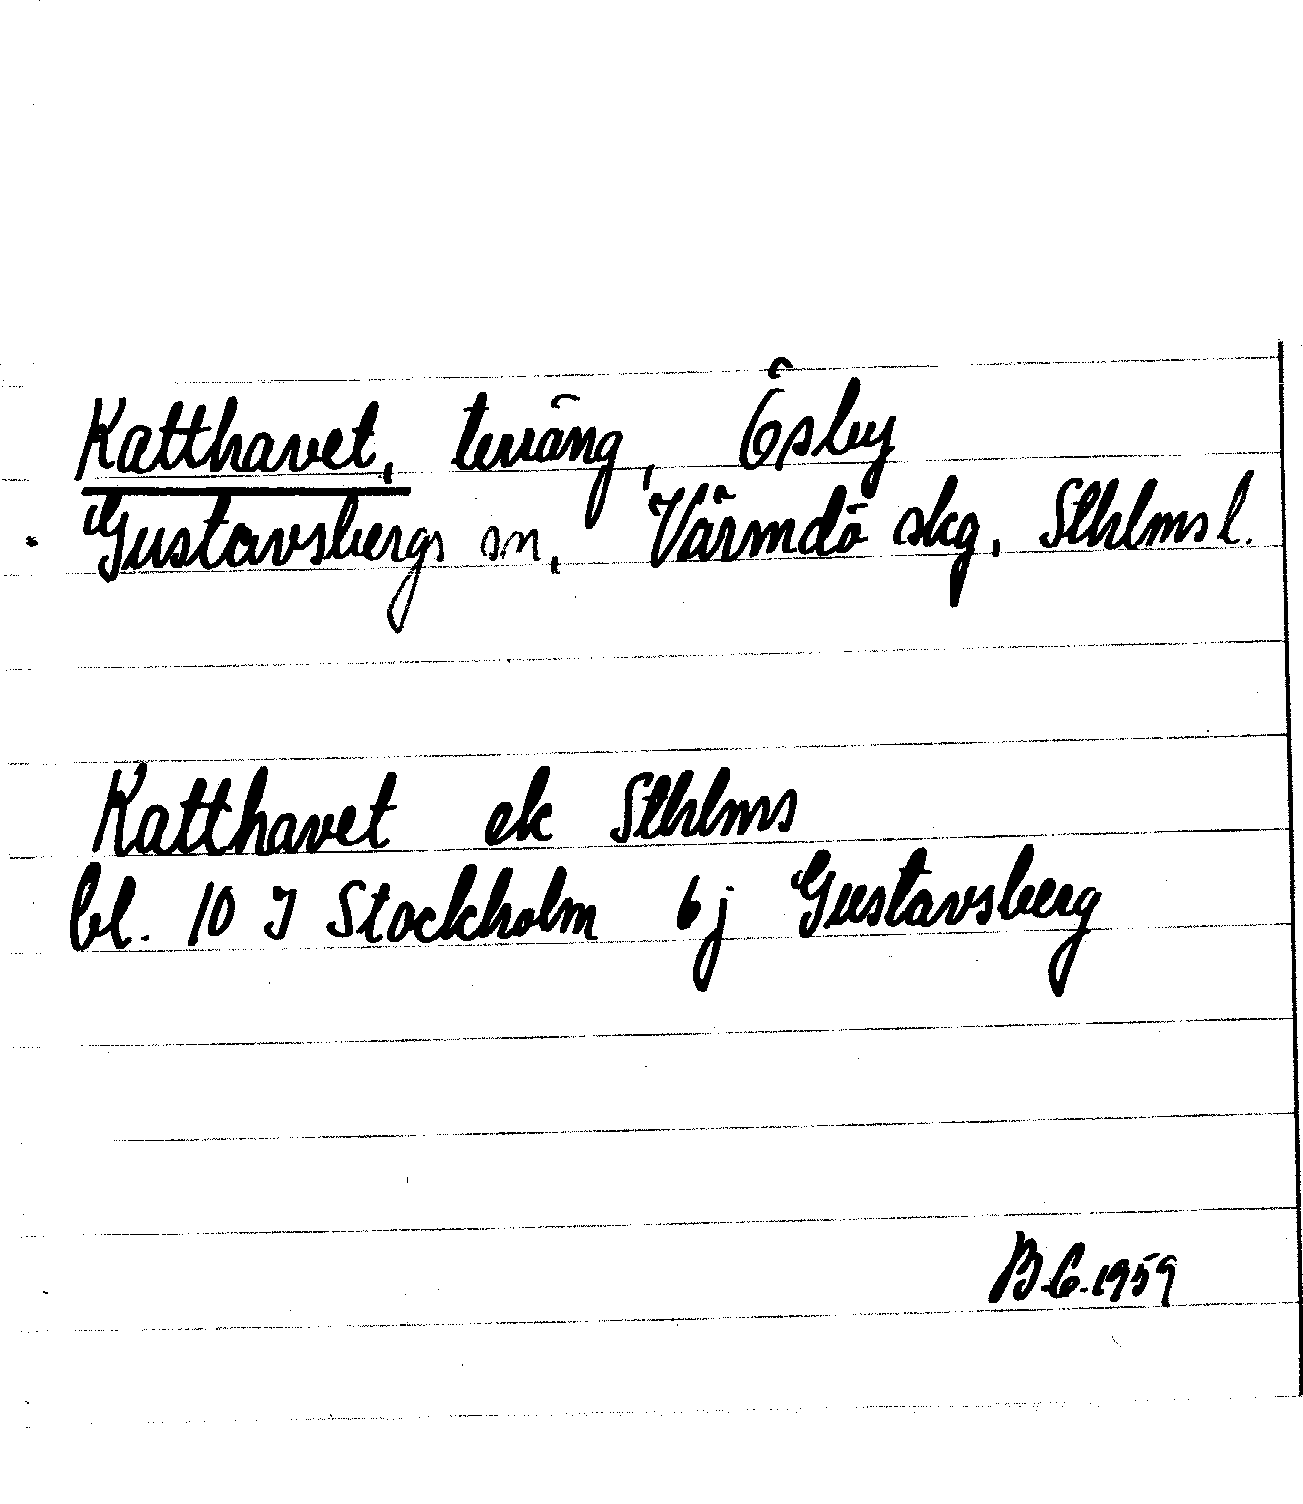 Katthavet, terräng, Ösby
Gustavsbergs sn, Värmdö skg, Sthlms l.
Katthavet ek Sthlms
bl. 10 I Stockholm 6j Gustavsberg
B.G.1959